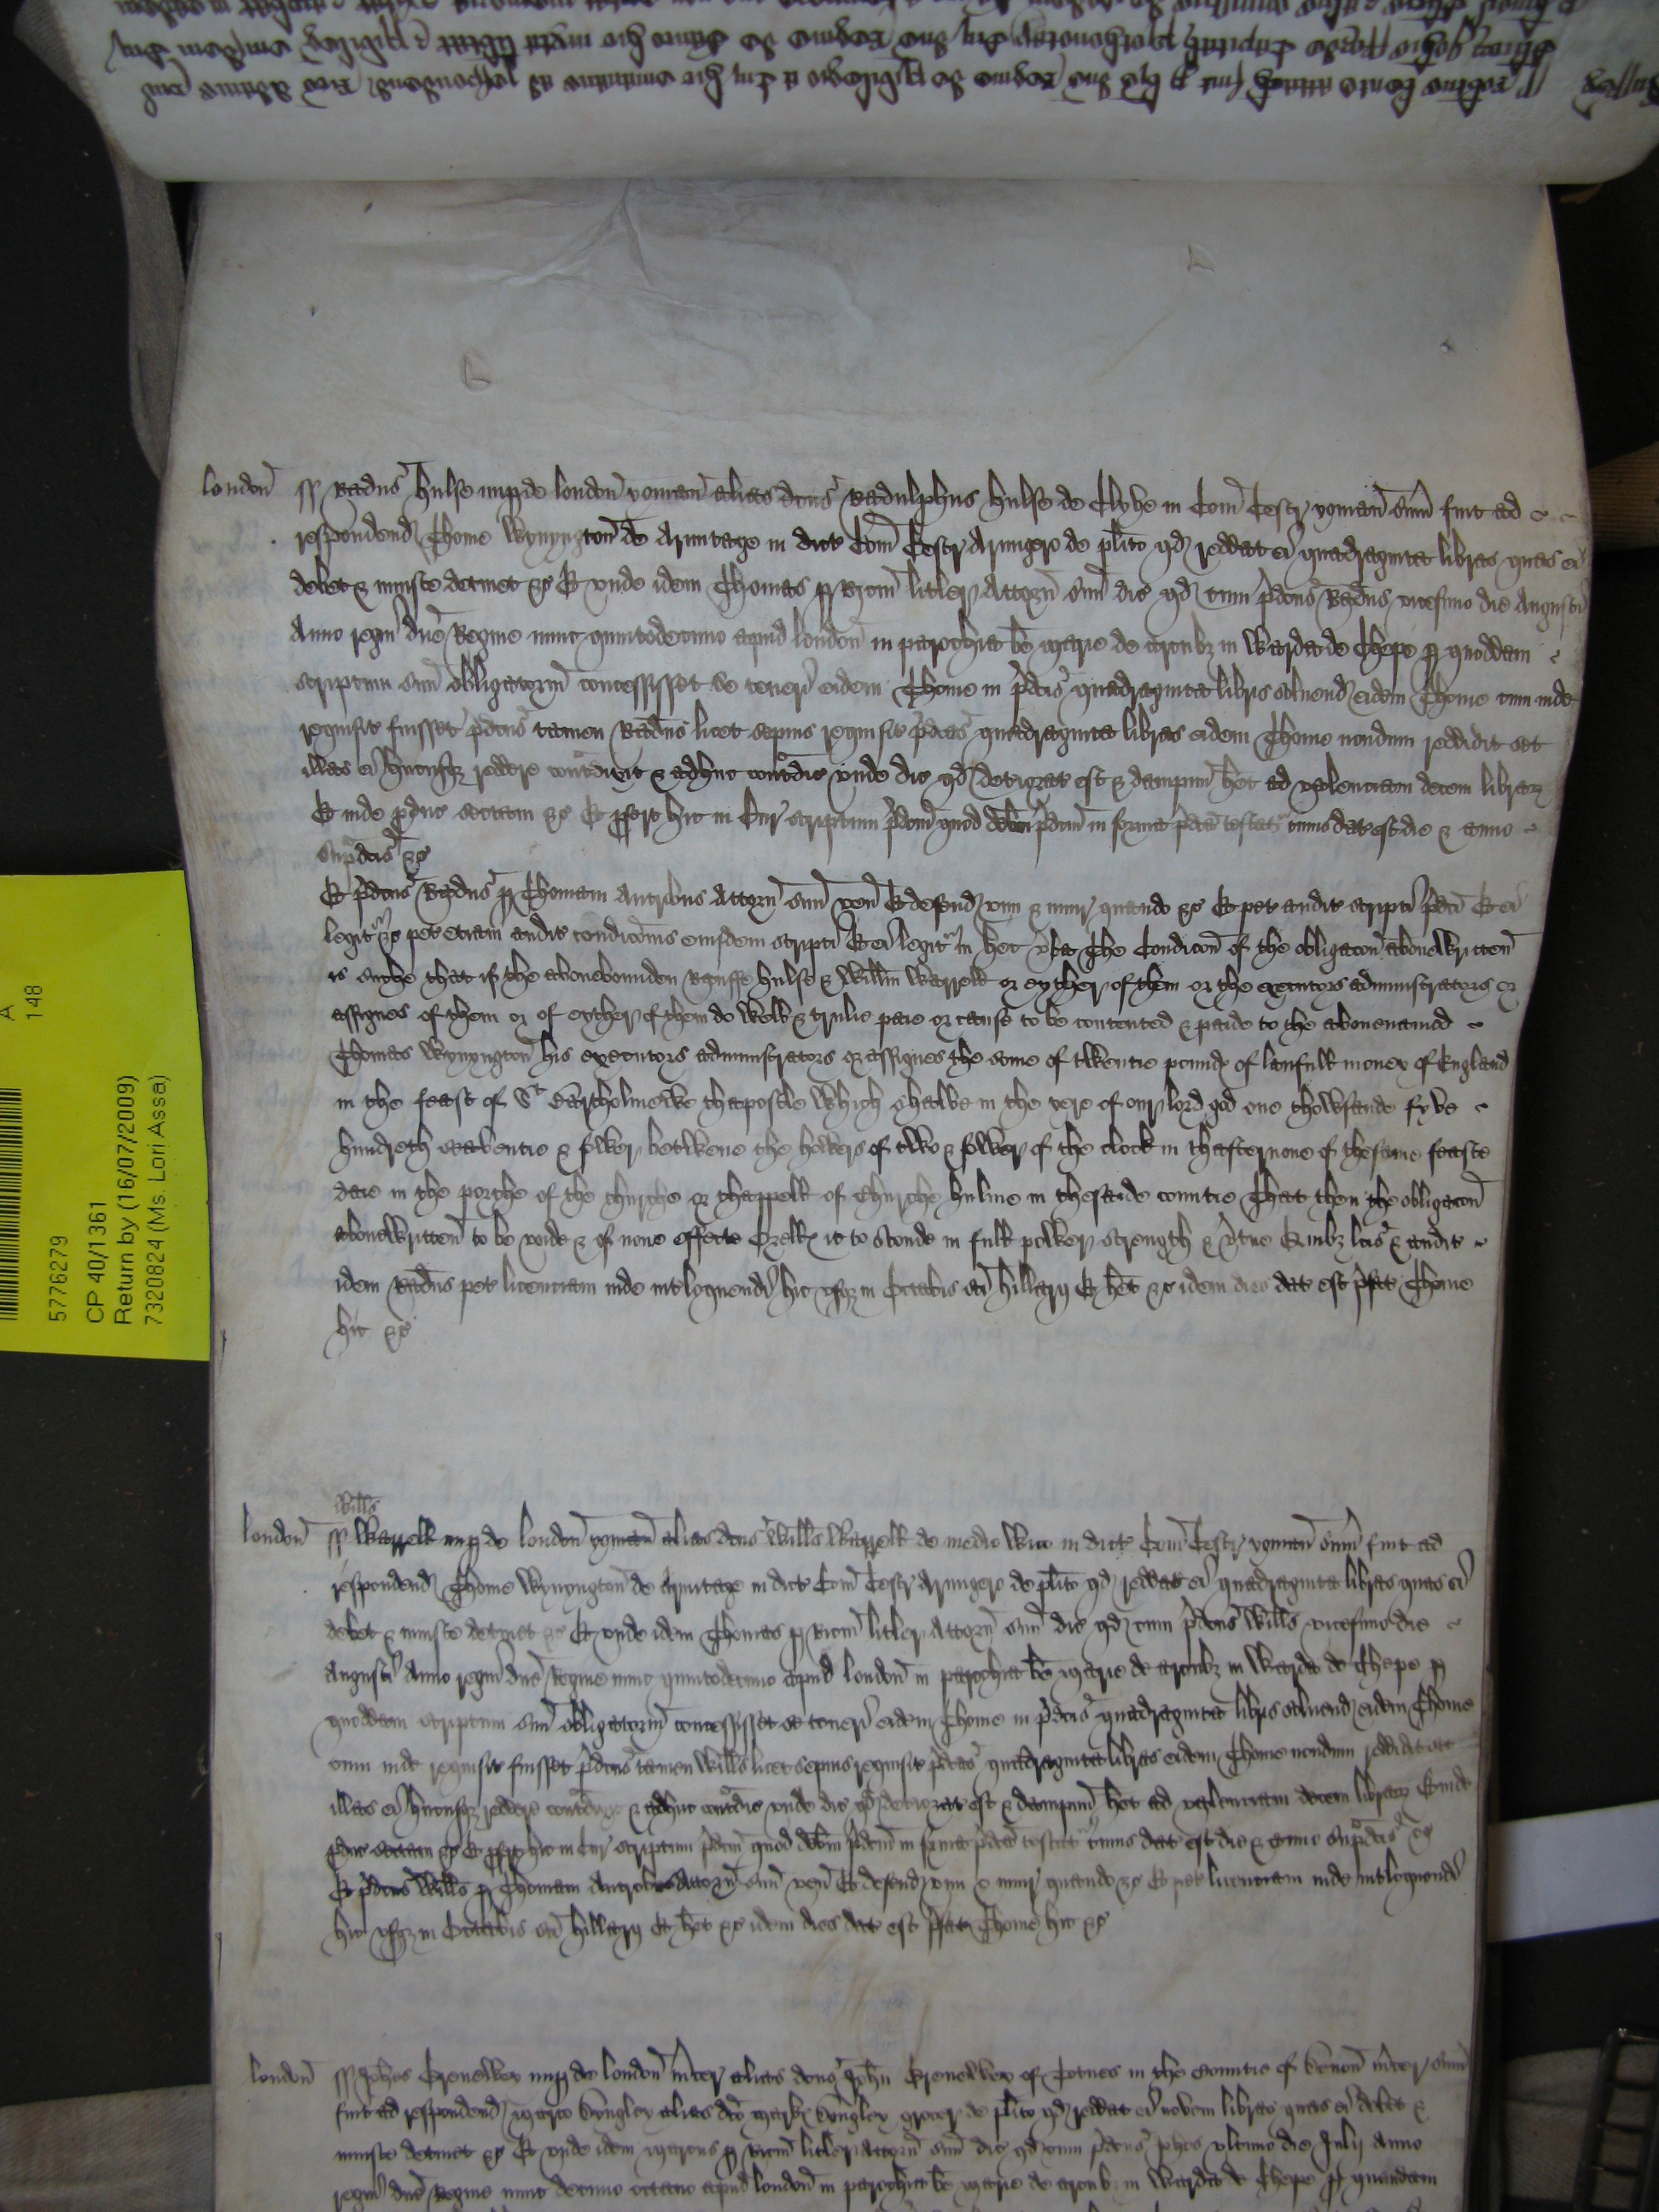 A
148
5776279
CP 40/1361
Return by (16/07/2009)
7320824 (Ms. Lori Assa)
london̄ ss Radus Hulse nup de london̄ yoman̄ alias dcus Radulphus Hulse de Clyve in Com̄ Cestr yoman̄ sum̄ fuit ad
respondend Thome Wynyngton̄ de Armitage in dict Com̄ Cestr Armigero de plito qd reddat ei quadraginta libras quas ei
debet & iniuste detinet &c Et unde idem Thomas p Ricm̄ litler Attorn̄ suū dic qd cum p̄dcus Radus vicesimo die Augusti
Anno regni dn̄e Regine nunc quintodecimo apud london̄ in parochia be Marie de arcubz in Warda de Chepe p quoddam
scriptum suū obligatoriū concessisset se teneri eidem Thome in p̄dcis quadraginta libris solvend eidem Thome cum inde
requisit fuisset p̄dcus tamen Radus licet sepius requisit p̄dcas quadraginta libras eidem Thome nondum reddidit set
illas ei hucusqz reddere contradixit & adhuc contradic unde dic qd deteriorat est & dampnū het ad valenciam decem librarz
Et inde pduc sectam &c Et pfert hic in Cur scriptum p̄dcm̄ quod debm p̄dcm̄ in forma p̄dca testat cuius dat est die & anno
sup̄dcis &c
Et p̄dcus Radus p Thomam Antrobus Attorn̄ suū ven̄ Et defend vim & iniur quando &c Et pet audit scripti p̄dci Et ei
legit &c pet eciam audit condicōnis eiusdem scripti Et ei legit in hec vba The Condicōn of the obligacōn abovewritten̄
is suche that if the abovebounden Rauffe Hulse & Willm̄ Warrell or eyther of them or the executors administrators or
assignes of them or of eyther of them do well & trulie paie or cause to be contented & paide to the abovenamed
Thomas Wynyngton̄ his executors administrators or assignes the some of twentie pounde of laufull money of England
in the feast of St Bartholmewe thapostle which shalbe in the yere of our lord god one thowsande fyve
hundreth seaventie & fower betwene the howers of two & fower of the clock in thafternone of thesame feaste
daie in the porche of the churche or chappell of Churche Hulme in thesaide countie That then the obligacōn
abovewritten̄ to be voide & of none effecte Or ells it to stonde in full power strength & vtue Quibz lcis & audit
idem Radus pet licenciam inde intloquendi hic usqz in Octabis sci Hillarij Et het &c idem dies dat est p̄fat Thome
hic &c
Willus
london̄ ss Warrell nup de london̄ yoman̄ alias dcus Willus Warrell de medio Wico in dict Com̄ Cestr yoman̄ sum̄ fuit ad
respondend Thome Wynyngton̄ de Armitage in dict Com̄ Cestr Armigero de plito qd reddat ei quadraginta libras quas ei
debet & iniuste detinet &c Et unde idem Thomas p Ricm̄ litler Attorn̄ suū dic qd cum p̄dcus Willus vicesimo die
Augusti Anno regni dn̄e Regine nunc quintodecimo apud london̄ in parochia be Marie de arcubz in Warda de Chepe p
quoddam scriptum suū obligatoriū concessisset se teneri eidem Thome in p̄dcis quadraginta libris solvend eidem Thome
cum inde requisit fuisset p̄dcus tamen Willus licet sepius requisit p̄dcas quadraginta libras eidem Thome nondum reddidit set
illas ei hucusqz reddere contradixit & adhuc contradic unde dic qd deteriorat est & dampnū het ad valenciam decem librarz Et inde
pduc sectam &c Et pfert hic in Cur scriptum p̄dcm̄ quod debm p̄dcm̄ in forma p̄dca testat cuius dat est die & anno sup̄dcis &c
Et p̄dcus Willus p Thomam Antrobus Attorn̄ suū ven̄ Et defend vim & iniur quando &c Et pet licenciam inde intloquendi
hic usqz in Octabis sci Hillarij Et het &c idem dies dat est p̄fat Thome hic &c
london̄ ss Johes Grenewey nup de london̄ mcer alias dcus John̄ Grenewey of Totnes in the Countie of Devon̄ mcer sum̄
fuit ad respondend Marco alias dco Marke grocer de plito qd reddat ei novem libras quas ei debet &
iniuste detinet &c Et unde idem Marcus p Ricm̄ litler Attorn̄ suū dic qd cum p̄dcus Johes ultimo die Julij Anno
regni dn̄e Regine nunc decimo octavo apud london̄ in parochia be Marie de arcubz in Warda de Chepe p quandam